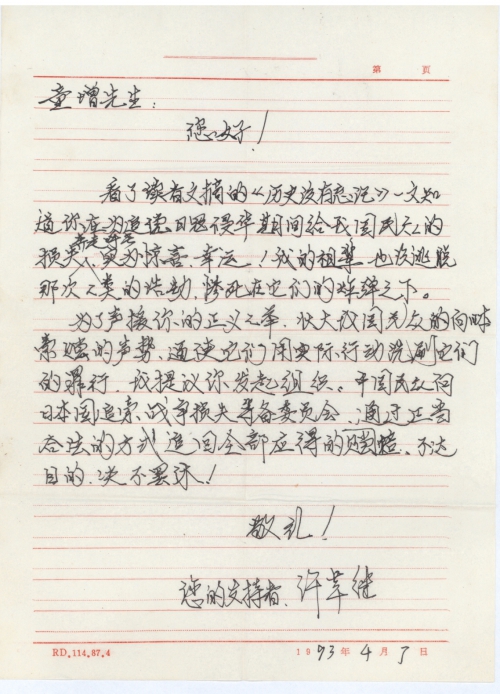 第 页
童增先生：
您好！
看了读者文摘的《历史没有忘记》一文知
道你在为追读日寇侵华期间给我国民众的
损失 更为惊喜、幸运！我的祖辈也没逃脱
那次人类的浩劫，惨死在它们的炸弹之下。
为了声援你的正义之举，壮大我国民众的向日本
索赔的声势，迫使它们用实际行动洗刷它们
的罪行，我提议你发起组织，中国民间向
日本国追索战争损失筹备委员会，通过正当
合法的方式追回全部应得的赔偿，不达
目的，决不罢休！
敬礼！
您的支持者、许 继
RD.114.87.4
1993年4月5日